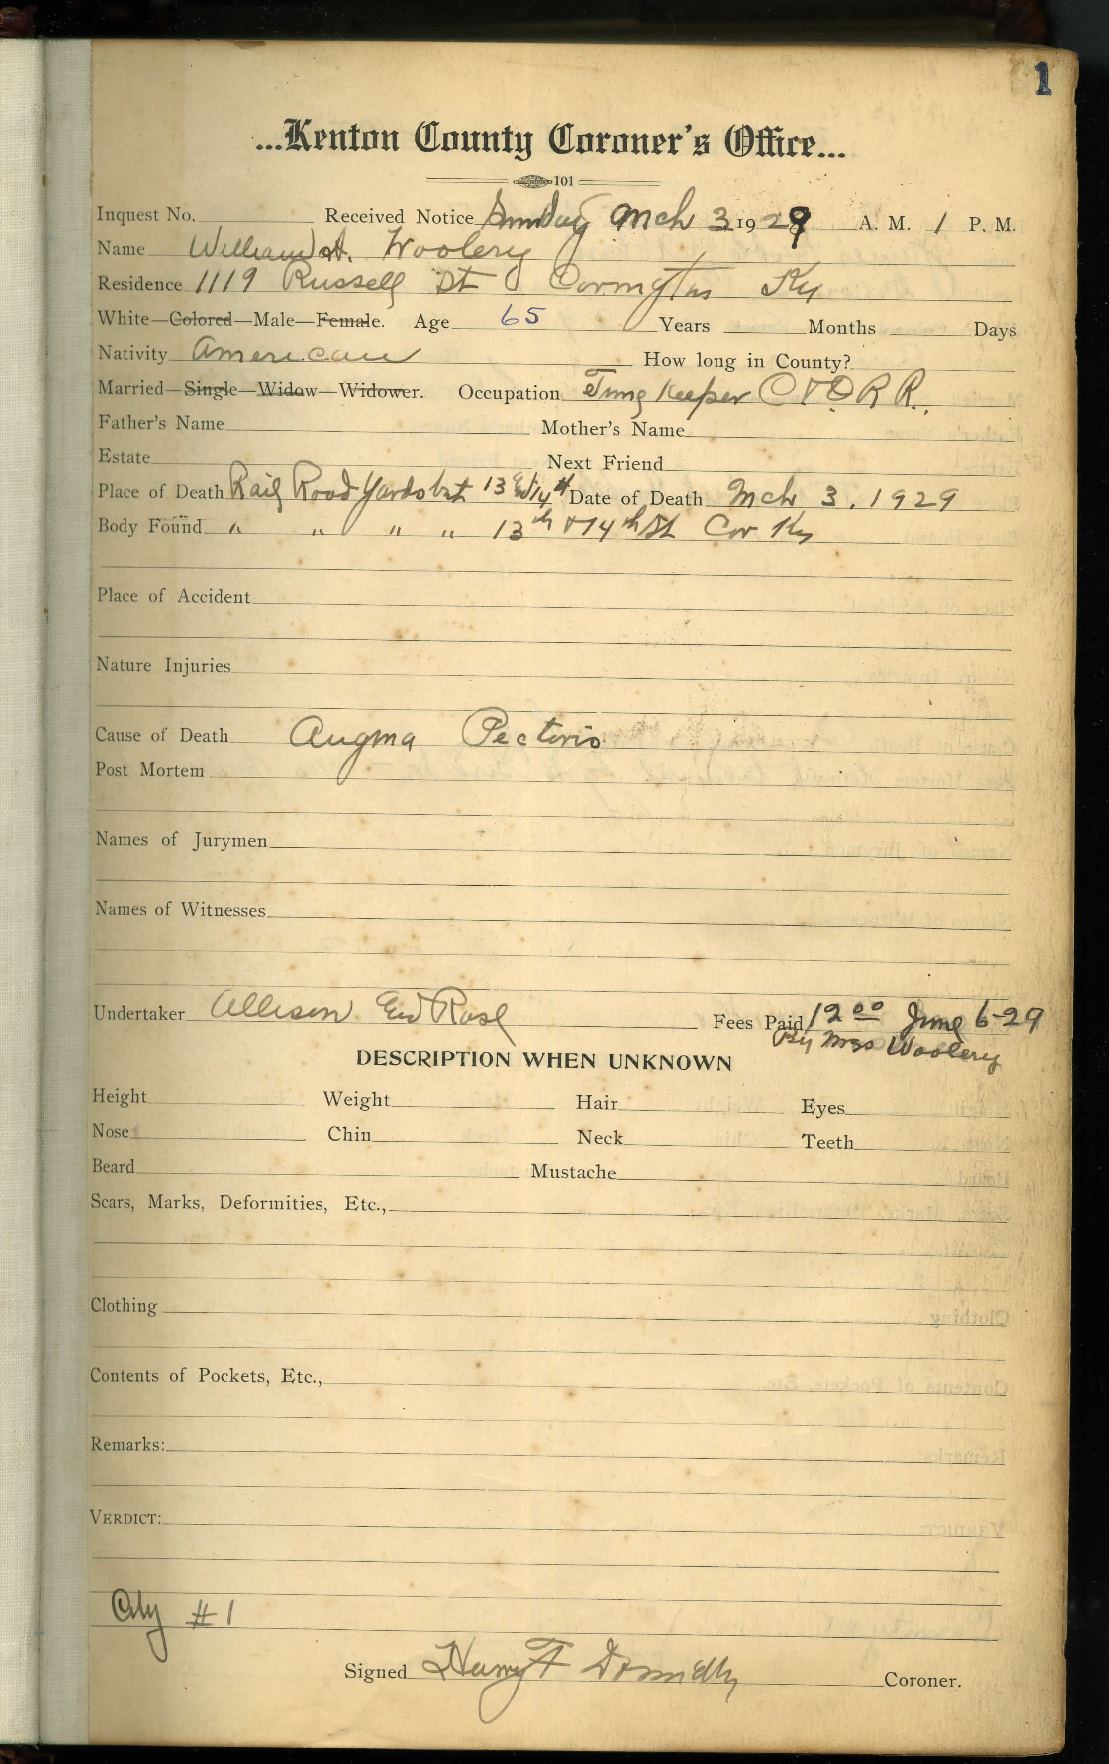 1
...Kenton County Coroner's Office...
101
Inquest No. Received Notice Sunday Mch 3 1929 A. M. 1 P. M.
Name William A. Woolery
Residence 1119 Russell St Covington Ky
White—Colored—Male—Female. Age 65 Years Months Days
Nativity American How long in County?
Married—Single—Widow—Widower. Occupation Time Keeper C & O R R.
Father's Name Mother's Name
Estate Next Friend
Place of Death Rail Road Yards bet 13 and 14th Date of Death Mch 3. 1929
Body Found " " " " 13th & 14th St Cov Ky
Place of Accident
Nature Injuries
Cause of Death Angina Pectoris
Post Mortem
Names of Jurymen
Names of Witnesses
Undertaker Allison and Rose Fees Paid 12 00 June 6-29
By Mrs Woolery
DESCRIPTION WHEN UNKNOWN
Height Weight Hair Eyes
Nose Chin Neck Teeth
Beard Mustache
Scars, Marks, Deformities, Etc.,
Clothing
Contents of Pockets, Etc.,
Remarks:
VERDICT:
City #1
Signed Harry F Donnelly Coroner.